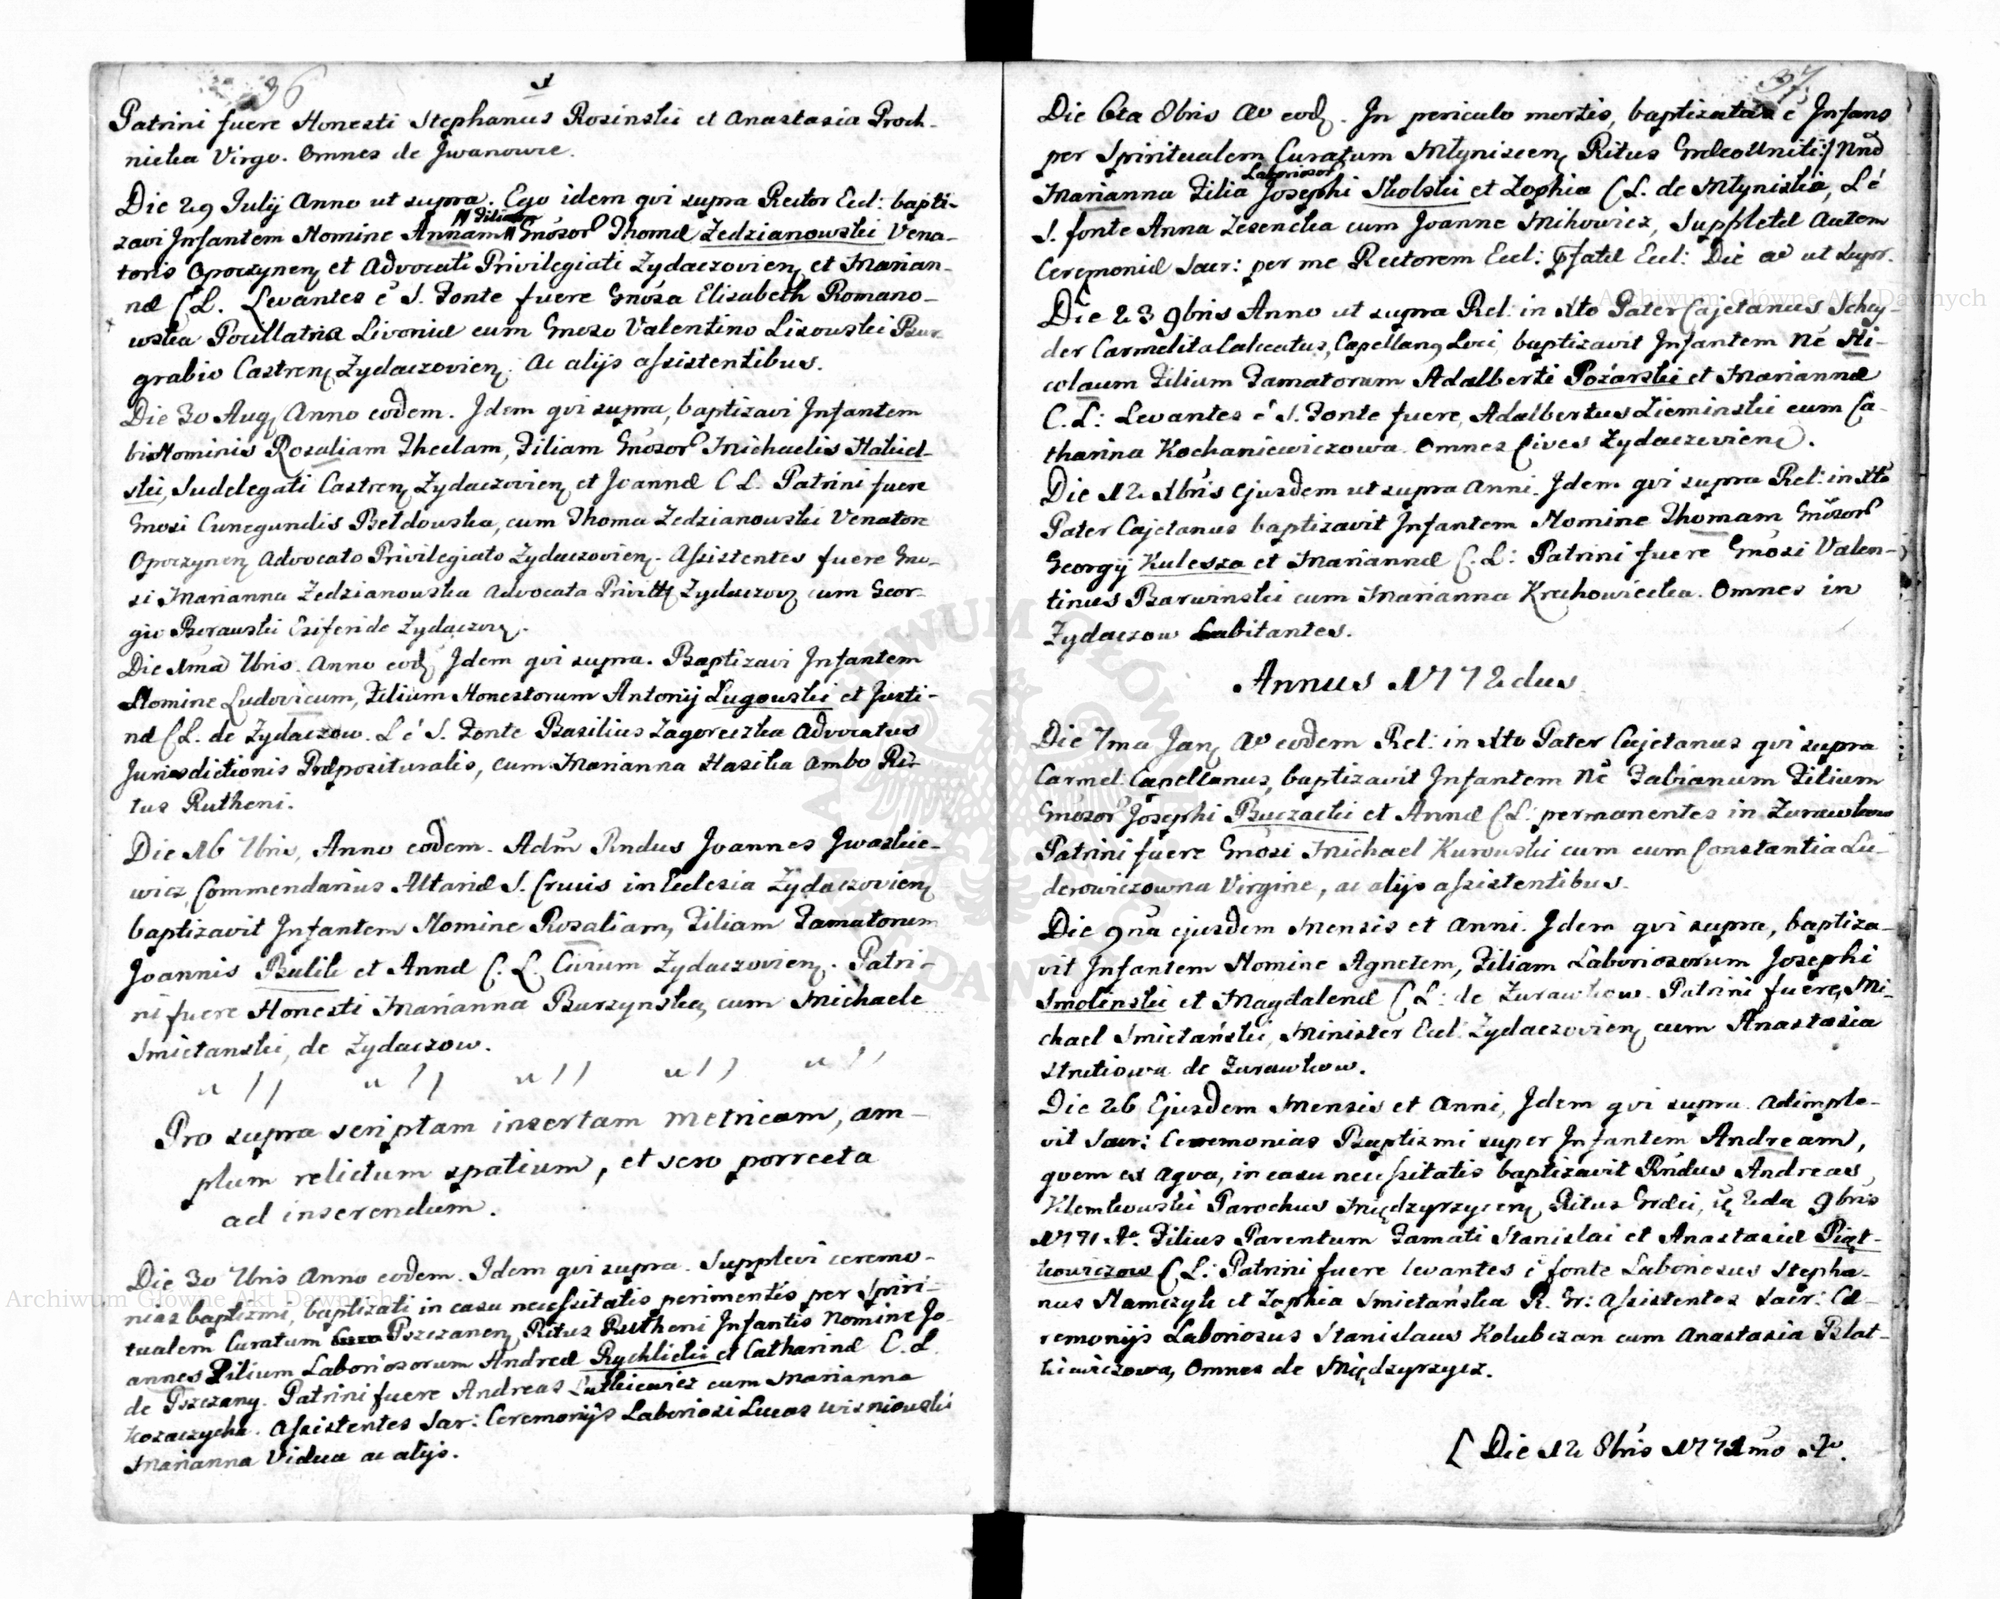 36
Patrini fuere Honesti Stephanus Rosinski et Anastasia Proch-
nicka Virgo. Omnes de Jwanowce.
Die 29 Julij Anno ut supra. Ego idem qvi supra Rector Eccl: bapti-
zavi Jnfantem Nomine Annam Filiam Gnosor Thomæ Zedzianowski Vena-
toris Opoczynen et Advocati Privilegiati Zydaczovien et Marian-
næ C L. Levantes è S. Fonte fuere Gnosa Elisabeth Romano-
wska Pocillatrix Livoniæ cum Gnoso Valentino Lisowski Bur-
grabio Castren Zydaczovien. Ac alijs assistentibus.
Die 30 Aug Anno eodem. Jdem qvi supra, baptizavi Jnfantem
biNominis Rosaliam Theclam, Filiam Gnosor Michaelis Haliec-
ski, Sudelegati Castren Zydaczovien et Joannæ C L. Patrini fuere
Gnosi Cunegundis Bełdowska, cum Thoma Zedzianowski Venatore
Opoczynen Advocato Privilegiato Zydaczovien. Assistentes fuere Gno-
si Marianna Zedzianowska Advocata Zydaczov cum Geor-
gio Borawski Zydaczov.
Die 1ma 7bris. Anno eod Jdem qvi supra. Baptizavi Jnfantem
Nomine Ludovicum, Filium Honestorum Antonij Ługowski et Justi-
næ C L. de Zydaczow. L é S. Fonte Basilius Zagoreczka Advocatus
Jurisdictionis Præposituralis, cum Marianna Hasika Ambo Ri-
tus Rutheni.
Die 16 7bris, Anno eodem. Adm Rndus Joannes Jwaskie-
wicz, Commendarius Altariæ S. Crucis in Ecclesia Zydaczovien
baptizavit Jnfantem Nomine Rosaliam, Filiam Famatorum
Joannis Bulik et Annæ C. L. Civium Zydaczovien. Patri-
ni fuere Honesti Marianna Burzynska, cum Michaele
Smietanski, de Zydaczow.
Pro supra scriptam insertam metricam, am-
plum relictum spatium, et sero porrecta
ad inserendum.
Die 30 7bris Anno eodem. Idem qvi supra. Supplevi ceremo-
nias baptizmi, baptizati in casu necessitatis perimentis per Spiri-
tualem Curatum Pszczanen, Ritus Rutheni Jnfantis Nomine Jo-
annes Filium Laboriosorum Andreæ Rychlicki et Catharinæ C. L.
de Pszczany. Patrini fuere Andreas Lutkiewicz cum Marianna
Kozaczycha. Assistentes Sar: Ceremonijs Laboriosi Lucas Wisniowski
Marianna Vidua ac alijs.
37
Die 6ta 8bris Ao eod. In periculo mortis, baptizatus é Jnfans
per Spiritualem Curatum Młyniscen, Ritus GræcoUniti:/ Nnd
Marianna Filia Laboriosor Josephi Skolski et Zophia C L. de Młyniska, L é
S. fonte Anna Zesencka cum Joanne Mikowicz, Suppletæ Autem
Ceremoniæ Sacr: per me Rectorem Eccl: Pfatæ Eccl: Die ao ut supr.
Die 23 9bris Anno ut supra Rel: in Xto Pater Cajetanus Schey-
der Carmelita Calceatus, Capellan Loci, baptizavit Jnfantem Ne Ni-
colaum Filium Famatorum Adalberti Pożarski et Mariannæ
C. L: Levantes é S. Fonte fuere, Adalbertus Zieminski cum Ca-
tharina Kochaniewiczowa. Omnes Cives Zydaczovien.
Die 12 Xbris Ejusdem ut supra Anni. Jdem qvi supra Rel: in Xto
Pater Cajetanus baptizavit Jnfantem Nomine Thomam Gnosor
Georgij Kulesza et Mariannæ C. L: Patrini fuere Gnosi Valen-
tinus Barwinski cum Marianna Krechowiecka. Omnes in
Zydaczow habitantes.
Annus 1772dus.
Die 7ma Jan Ao eodem Rel: in Xto Pater Cajetanus qvi supra
Carmel: Capellanus, baptizavit Jnfantem Ne Fabianum Filium
Gnosor Josephi Buczacki et Annæ C L: permanentes in Zurawkow
Patrini fuere Gnosi Michael Kurowski cum cum Constantia Lu-
derowiczowna Virgine, ac alijs assistentibus.
Die 9na ejusdem Mensis et Anni. Jdem qvi supra, baptiza-
vit Jnfantem Nomine Agnetem, Filiam Laboriosorum Josephi
Smolinski et Magdalenæ C L: de Zurawkow. Patrini fuere, Mi-
chael Smietański, Minister Eccl. Zydaczovien cum Anastasia
Strutiowa de Zurawkow.
Die 26 Ejusdem Mensis et Anni, Jdem qvi supra. Adimple-
vit Sacr: Ceremonias Baptizmi super Jnfantem Andream,
qvem ex Aqva, in casu necessitatis baptizavit Rndus Andreas
Klemkowski Parochus Międzyrzycen, Ritus Græci, 2da 9bris
1771 Ao. Filius Parentum Famati Stanislai et Anastasiæ Piąt-
kowiczow C L: Patrini fuere levantes é fonte Laboriosus Stepha-
nus Mamczyk et Zophia Smietańska R. Gr: Assistentes Sacr: Ce-
remonijs Laboriosus Stanislaus Kolubczan cum Anastasia Blat-
kiewiczowa, Omnes de Międzyrzycz.
[ Die 12 8bris 1771mo Ao.
Archiwum Główne Akt Dawnych
Archiwum Główne Akt Dawnych
ARCHIWUM GŁÓWNE AKT DAWNYCH